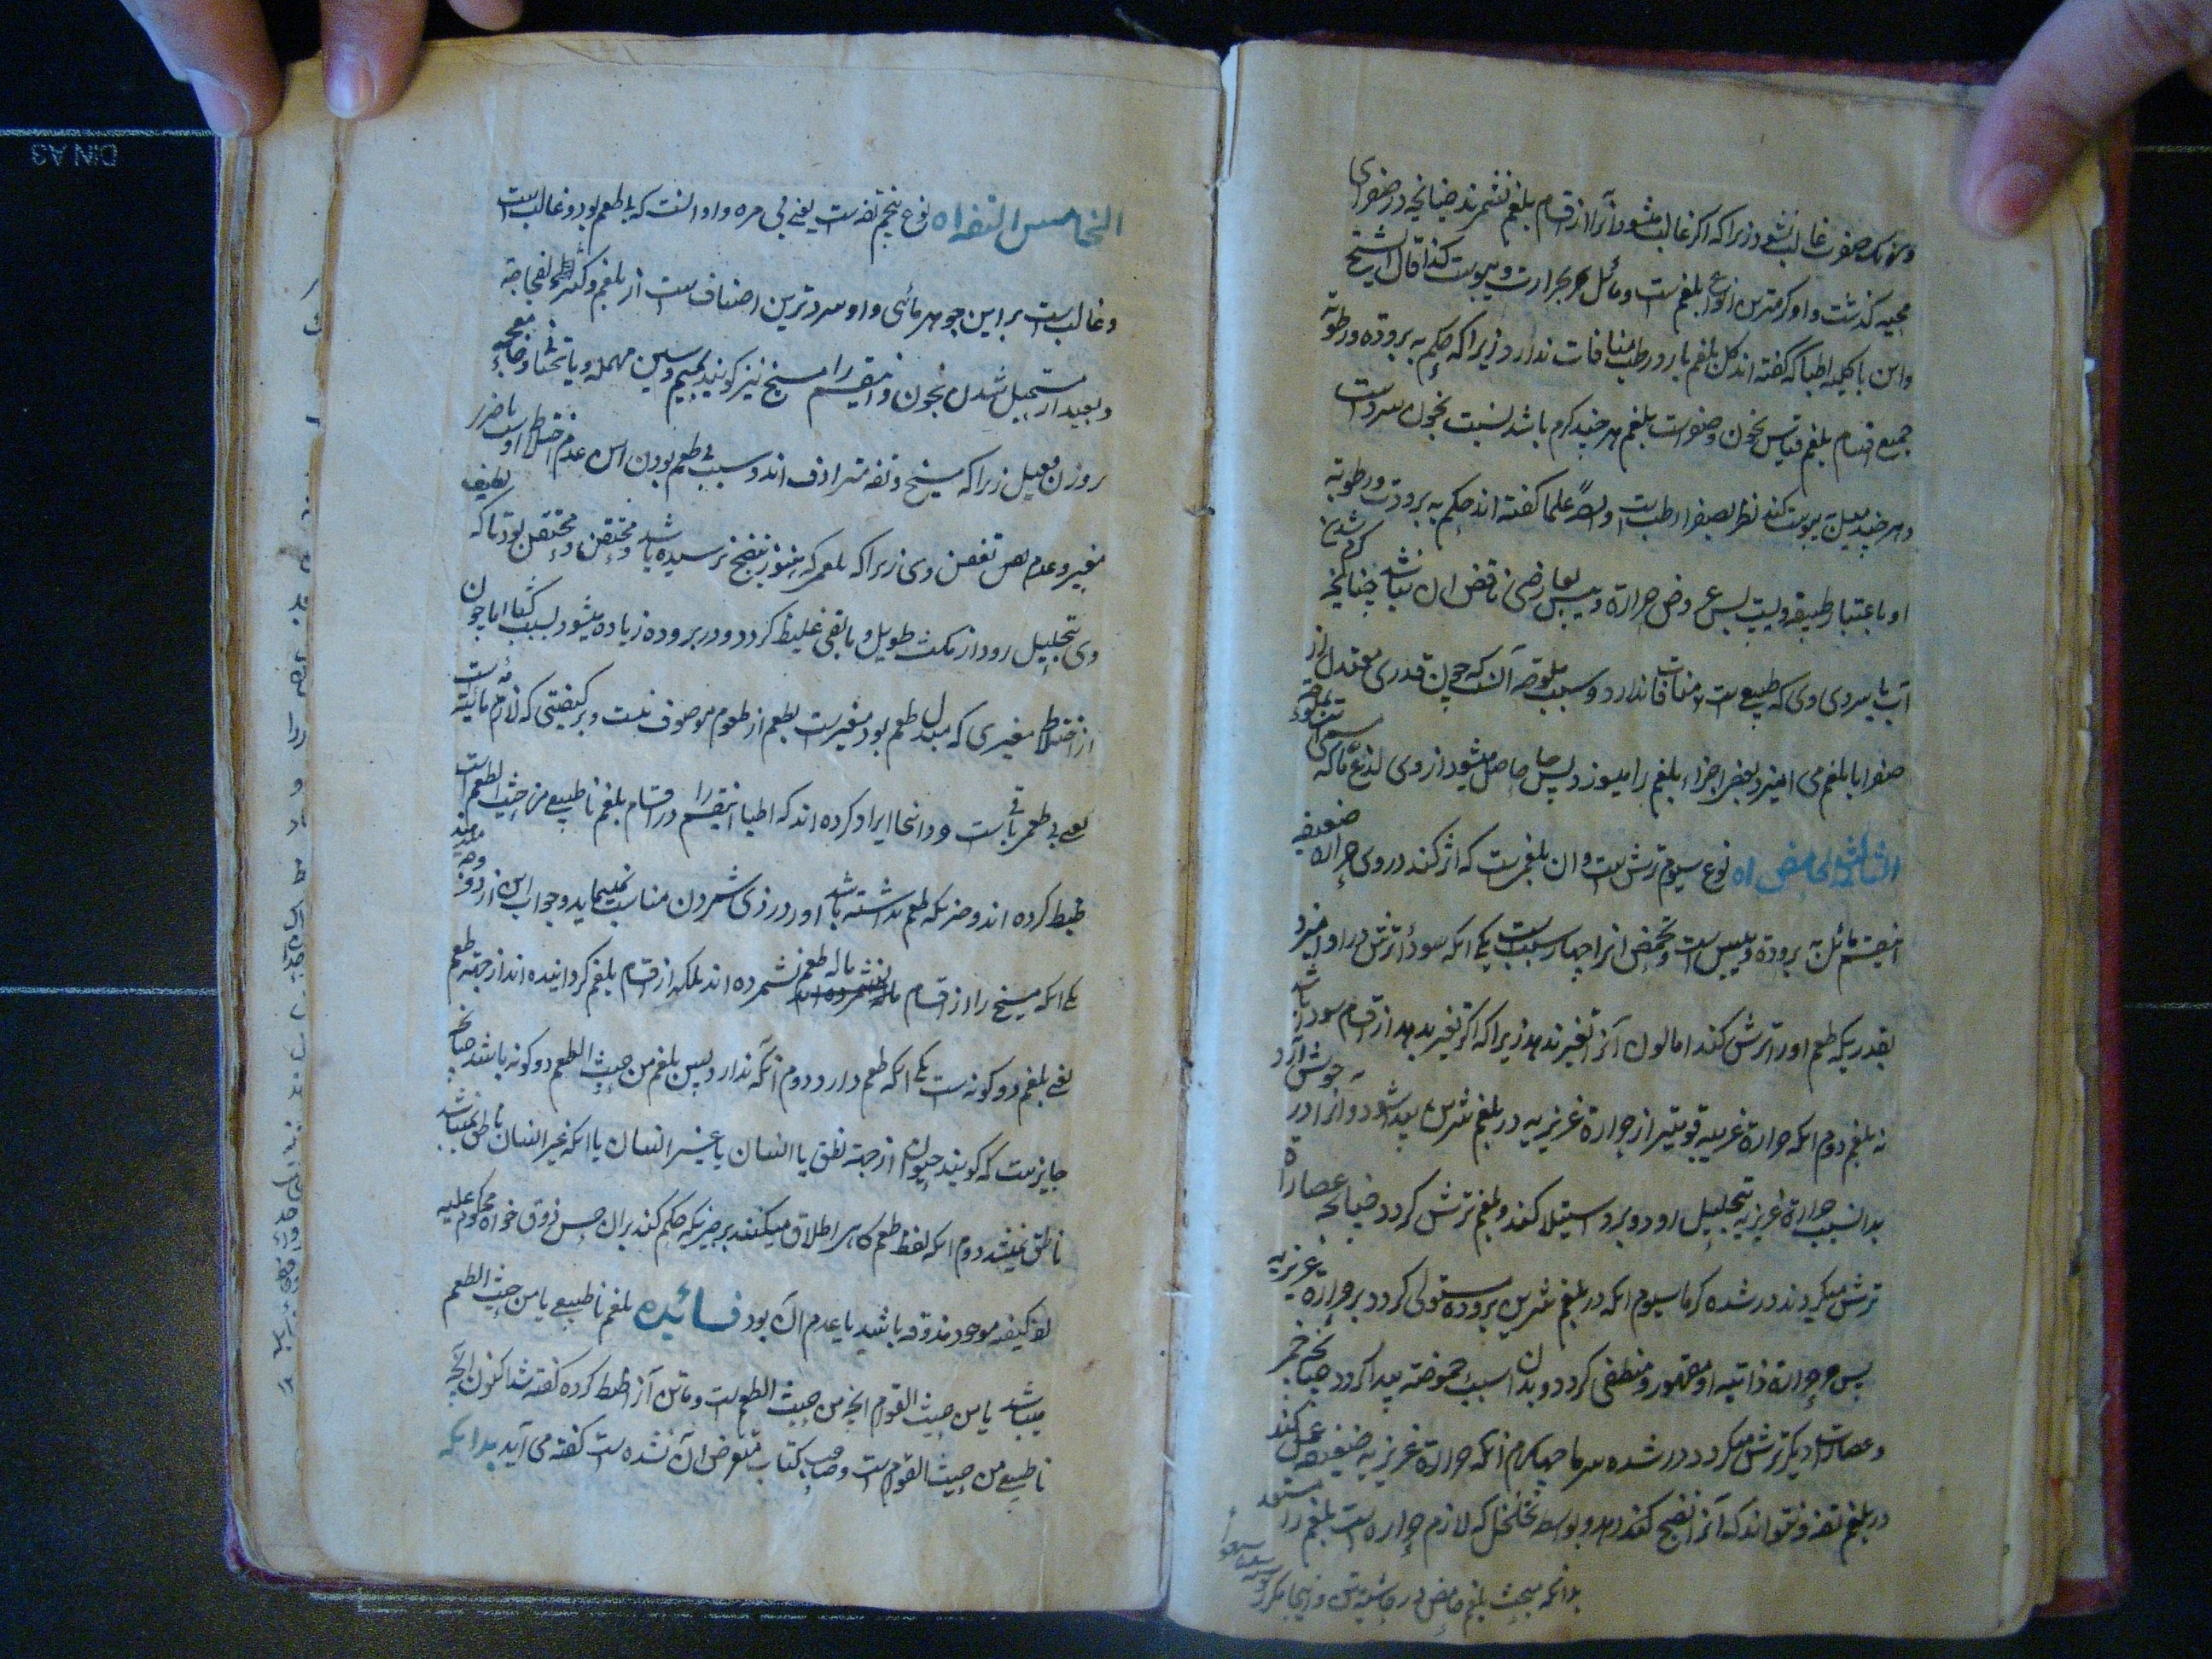 غالب نشود زیرا که اگر غالب شود آنرا از اقسام بلغم نشمرند چنانچه در صفرای
محیه گذشت و او گرم‌ترین انواع بلغم ست و مائل بحرارت و یبوست کذا قال الشیخ
و این با کلیه اطبا که گفته اند کل بلغم بارد رطب منافات ندارد زیرا که حکم به بروده و رطوبة
جمیع اقسام بلغم بقیاس بخون و صفراست بلغم هر چند گرم باشد نسبت بخون سردست
و هر چند میل به یبوست کند نظر بصفرا رطب ست علما گفته اند حکم به برودت و رطوبة
او باعتبار طبیعة ویست پس عروض حرارة و یبس عارضی ناقض ان نباشد چنانچه گرم شدن
آب با سردی وی که طبیعی ست منافات ندارد و سبب ملوحة آنست که چون قدری معتدل از
صفرا با بلغم می امیزد بعضی اجزاء بلغم را میسوزد پس حاصل میشود از وی لذع
الثالث الحامض اه نوع سیوم ترش ست و ان بلغمی ست که اثر کند در وی حرارة ضعیفه
اینقسم مائل به بروده و یبس ست و تحمض انرا چهار سبب ست یکی آنکه سوداء ترش در او امیزد
بقدریکه طعم او را ترش کند اما لون آنرا تغیر ندهد زیرا که اگر تغیر بدهد از اقسام سودا باشد
نه بلغم دوم آنکه حرارة غریبه قویتر از حرارة غریزیه در بلغم شیرین پیدا شود و آنرا در جوش آرد
بدانسبب حرارة غریزیه تحلیل رود و برد استیلا کند و بلغم ترش گردد چنانچه عصارة
ترش میگردند در شده گرما سیوم آنکه در بلغم شیرین بروده مستولی گردد بر حرارة غریزیه
پس حرارة ذاتیه او مقهور و منطفی گردد و بدان سبب حموضه پیدا گردد چنانچه خمر
و عصارات دیگر ترش میگردد در شده سرما چهارم آنکه حرارة غریزیه ضعیفه عمل کند
در بلغم تفه و نتواند که آنرا نضج کند و بواسطه تخلخل که لازم حرارة است بلغم را مستعد
بدانکه مبحث بلغم حامض در حاشیه
الخامس التفه اه نوع پنجم تفه ست یعنی بی مزه و او انست که بی طعم بود و غالب است
و غالب ست بر این جوهر مائی و او سردترین اصناف ست از بلغم و
و بعید از مستحیل شدن بخون و اینقسم را مسیخ نیز گویند بمیم و سین مهمله و یا تحتانی و خاء معجمه
بر وزن فعیل زیرا که مسیخ و تفه مترادف اند و سبب بی طعم بودن این عدم اختلاط اوست با
مغیر و عدم تعفن وی زیرا که بلغمی که هنوز بنضج نرسیده باشد و محتقن بود تا که لطیف
وی بتحلیل رود از مکث طویل و باقی غلیظ گردد و در بروده زیاده میشود بسبب کثافت اما چون
از اختلاط مغیری که مبدل طعم بود مغیر ست بطعم از طعوم موصوف نیست و بر کیفیتی که لازم مائیة ست
یعنی بی طعمی باقی ست و در اینجا ایراد کرده اند که اطبا اینقسم را در اقسام بلغم نا طبیعی من حیث الطعم
ضبط کرده اند و چیزیکه طعم نداشته باشد او را در ذی شمردن مناسب نمینماید و جواب این از دو وجه
یکی آنکه مسیخ را از اقسام ما له طعم نشمرده اند بلکه از اقسام بلغم گردانیده اند از جهة طعم
یعنی بلغم دو گونه ست یکی آنکه طعم دارد دوم آنکه ندارد پس بلغم من حیث الطعم دو گونه باشد چنانچه
جایز ست که گویند حیوان از جهة نطق یا انسان یا غیر انسان با آنکه غیر انسان ناطق نمیباشد
ناطق نمیشد دوم آنکه لفظ طعم گاهی اطلاق میکنند بر چیزیکه حکم کند بر ان حس ذوق خواه محکوم علیه
کیفیه موجوده مذوقه باشد یا عدم ان بود فائده بلغم نا طبیعی یا من حیث الطعم
میباشد یا من حیث القوام انچه من حیث الطعم ست و ماتن آنرا ضبط کرده گفته شد اکنون انچه
نا طبیعی من حیث القوام ست و صاحب کتاب متعرض ان نشده ست گفته می آید بدانکه